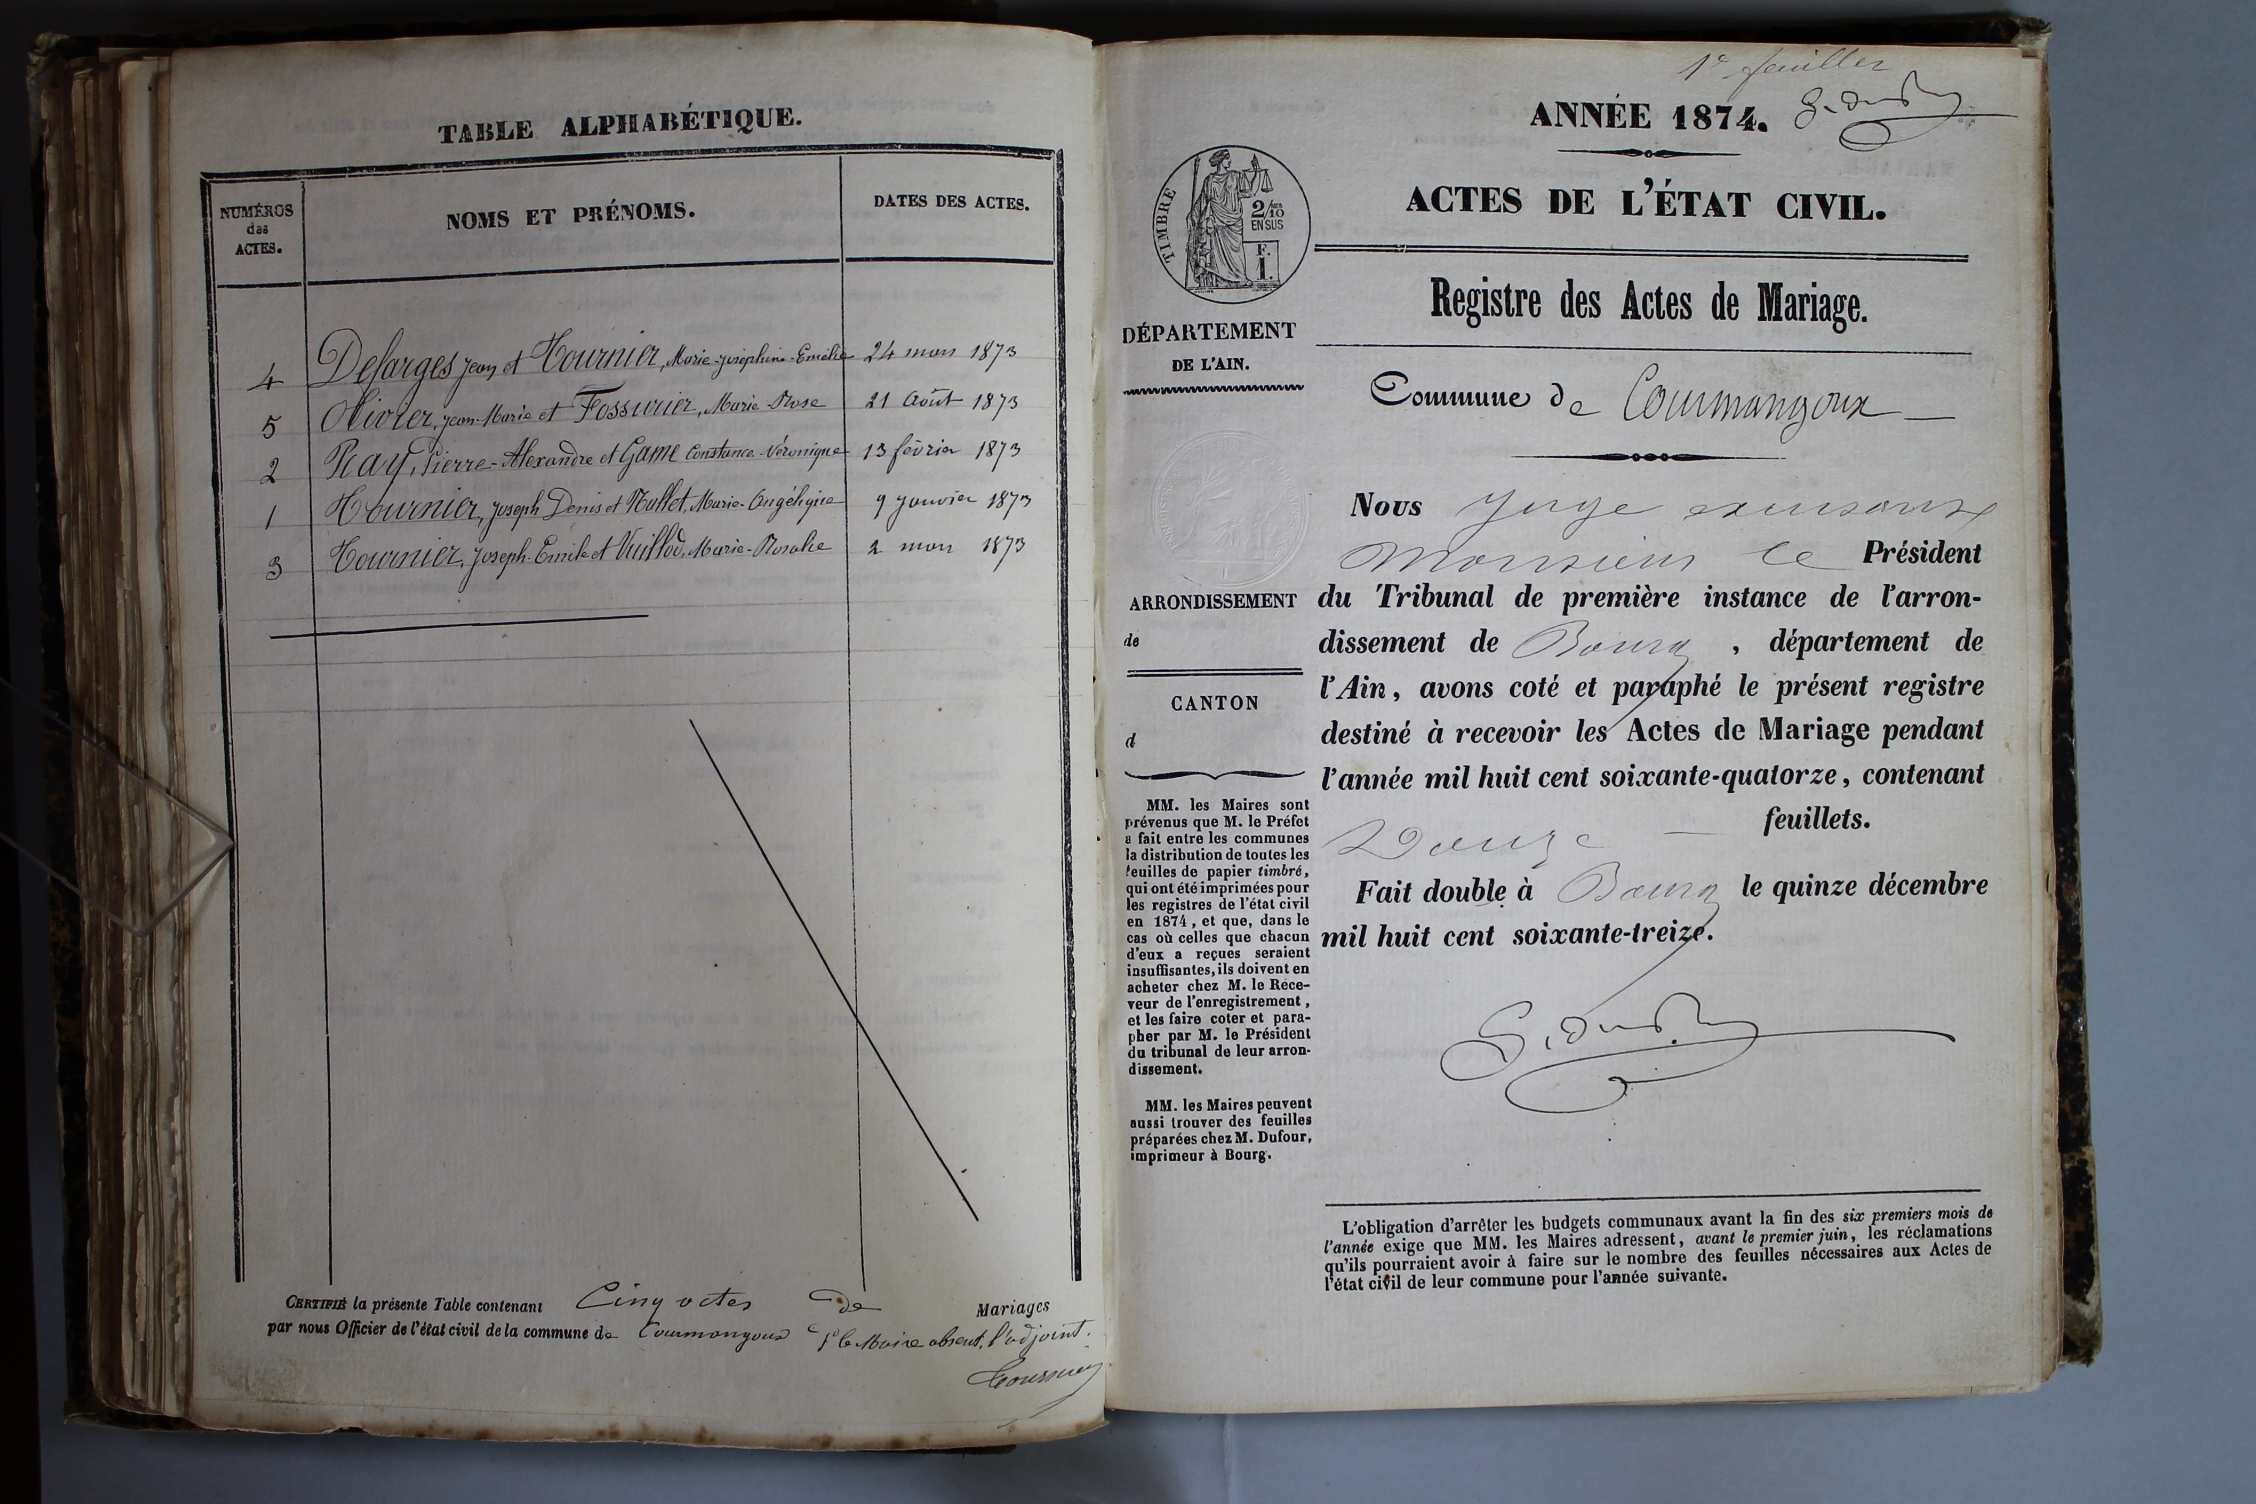 TABLE ALPHABÉTIQUE.
NUMÉROS
des
ACTES.
NOMS ET PRÉNOMS.
DATES DES ACTES.
4 Defarges Jean et Tournier, Marie-Joséphine-Emélie 24 mars 1873
5 Olivier, Jean-Marie et Fossurier, Marie-Rose 21 Août 1873
2 Ray, Pierre-Alexandre et Game Constance-Véronique 13 février 1873
1 Tournier, Joseph Denis et Mallet, Marie-Angélique 9 janvier 1873
3 Tournier, Joseph-Emile et Vuillod, Marie-Rosalie 2 mars 1873
CERTIFIÉ la présente Table contenant Cinq actes de Mariages
par nous Officier de l'état civil de la commune de Courmangoux Pr le Maire absent, l'adjoint.
1er feuillet
ANNÉE 1874.
ACTES DE L'ÉTAT CIVIL.
TIMBRE
2/10
EN SUS
F.
1.
Registre des Actes de Mariage.
DÉPARTEMENT
DE L'AIN.
Commune de Courmangoux
Nous Juge
Monsieur le Président
du Tribunal de première instance de l'arron-
dissement de Bourg, département de
l'Ain, avons coté et paraphé le présent registre
destiné à recevoir les Actes de Mariage pendant
l'année mil huit cent soixante-quatorze, contenant
Douze feuillets.
Fait double à Bourg le quinze décembre
mil huit cent soixante-treize.
ARRONDISSEMENT
de
CANTON
d
MM. les Maires sont
prévenus que M. le Préfet
a fait entre les communes
la distribution de toutes les
feuilles de papier timbré,
qui ont été imprimées pour
les registres de l'état civil
en 1874, et que, dans le
cas où celles que chacun
d'eux a reçues seraient
insuffisantes, ils doivent en
acheter chez M. le Rece-
veur de l'enregistrement,
et les faire coter et para-
pher par M. le Président
du tribunal de leur arron-
dissement.
MM. les Maires peuvent
aussi trouver des feuilles
préparées chez M. Dufour,
imprimeur à Bourg.
L'obligation d'arrêter les budgets communaux avant la fin des six premiers mois de
l'année exige que MM. les Maires adressent, avant le premier juin, les réclamations
qu'ils pourraient avoir à faire sur le nombre des feuilles nécessaires aux Actes de
l'état civil de leur commune pour l'année suivante.